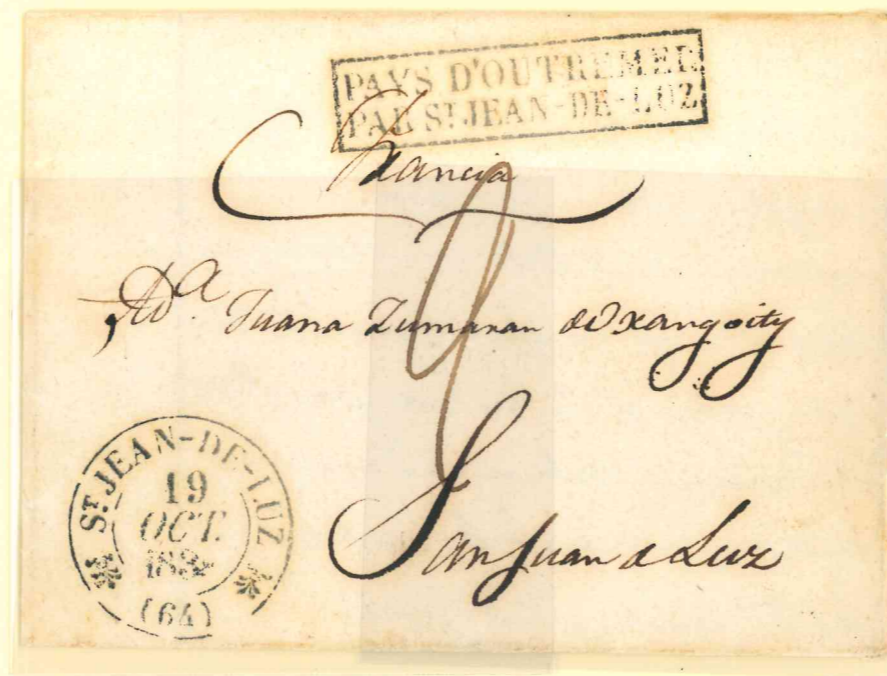 PAYS D'OUTREMER
PAR ST JEAN-DE-LUZ
Francia
A Da Juana Zumaran de
San Juan de Luz
ST JEAN-DE-LUZ
19
OCT.
(64)